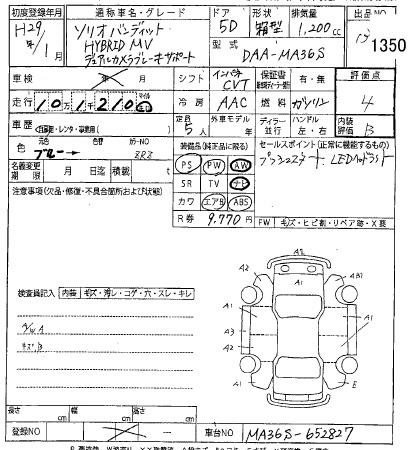 初度登録年月 通称車名・グレード ドア 形状 排気量 出品NO
H29年/1月 ソリオバンディット 5D 箱型 1,200cc 1350
HYBRID MV
デュアルカメラブレーキサポート 型式 DAA-MA36S
車検 年 月 シフト インパネ CVT 保証書 有・無 評価点
走行 10万1千210 冷房 AAC 燃料 ガソリン 4
車歴 自家用・レンタ・事業用 定員 5人 ディーラー 並行 ハンドル 左・右 内装評価 B
色 元色 色替 カラーNO
ブルー→ 装備品(純正に限る) セールスポイント(正常に機能するもの)
名義変更期限 月 日迄 積載 t PS PW AW プッシュスタート LEDヘッドライト
注意事項(欠品・修復・不具合箇所および状態) SR TV ナビ
カワ エアB ABS
R券 9,770円 FW キズ・ヒビ割・リペア跡・X要
検査員記入 内装 キズ・汚レ・コゲ・穴・スレ・キレ
A/W A
キズ B
A1
A2 A1 AB1
A1 A1
A3
A2 A1
A1 E
A1
長さ cm 幅 cm 高さ cm
登録NO 車台NO MA36S-652827